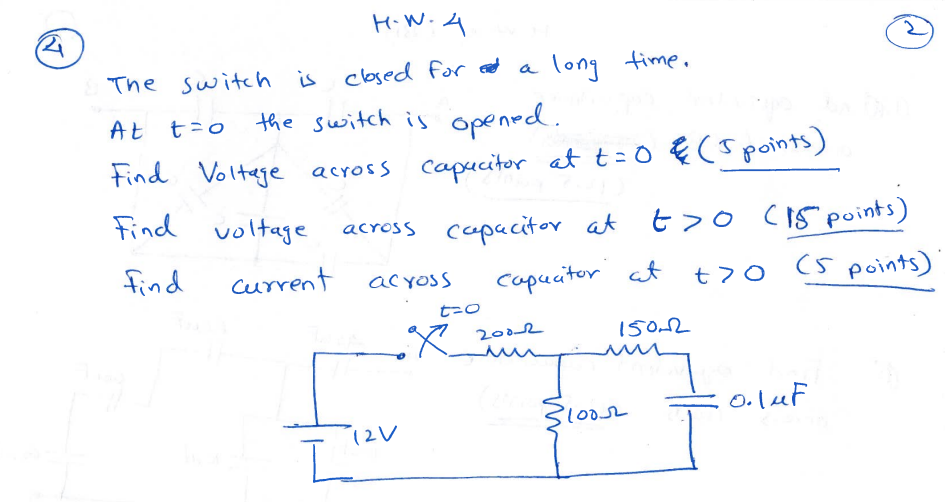 H.W. 4
④ ②
The switch is closed for a long time.
At t=0 the switch is opened.
Find Voltage across capacitor at t=0 (5 points)
Find voltage across capacitor at t>0 (15 points)
Find current across capacitor at t>0 (5 points)
t=0
200Ω 150Ω
100Ω 0.1uF
12V